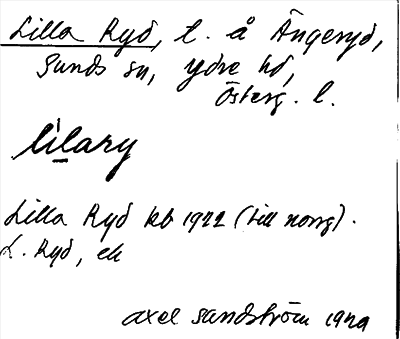 Lilla Ryd, t. å Ängeryd,
Sunds sn, Ydre hd,
Österg. l.
lilary
Lilla Ryd kb 1922 (till norrg).
L. Ryd, ek
Axel Sandström 1929